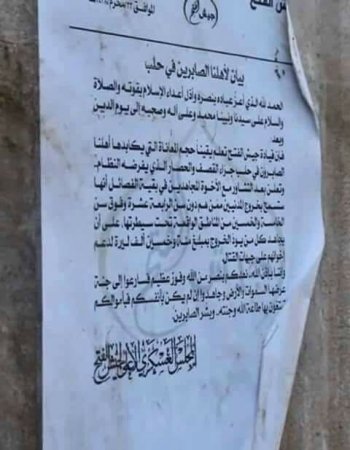 جيش الفتح
الموافق
بيان لأهلنا الصابرين في حلب
الحمد لله الذي أعز عباده بنصره وأذل أعداء الإسلام بقوته والصلاة
والسلام على سيدنا ونبينا محمد وعلى آله وصحبه إلى يوم الدين
وبعد
فإن قيادة جيش الفتح تعلم يقيناً حجم المعاناة التي يكابدها أهلنا
الصابرون في حلب جراء القصف والحصار الذي يفرضه النظام،
وتعلن بعد التشاور مع الأخوة المجاهدين في بقية الفصائل أنها
ستسمح بخروج المدنيين ممن هم دون سن الرابعة عشرة وفوق سن
الخامسة والخمسين من المناطق الواقعة تحت سيطرتها، على أن
يجاهد كل من يود الخروج بمبلغ مئة وخمسين ألف ليرة لدعم
إخوانه على جبهات القتال.
وإننا بإذن الله، نعدكم بنصر من الله وفوز عظيم فسارعوا إلى جنة
عرضها السماوات والأرض وجاهدوا إن لم يكن بأنفسكم فبأموالكم
تبتغون بها طاعة الله وجنته. وبشر الصابرين.
المجلس العسكري الأعلى لجيش الفتح